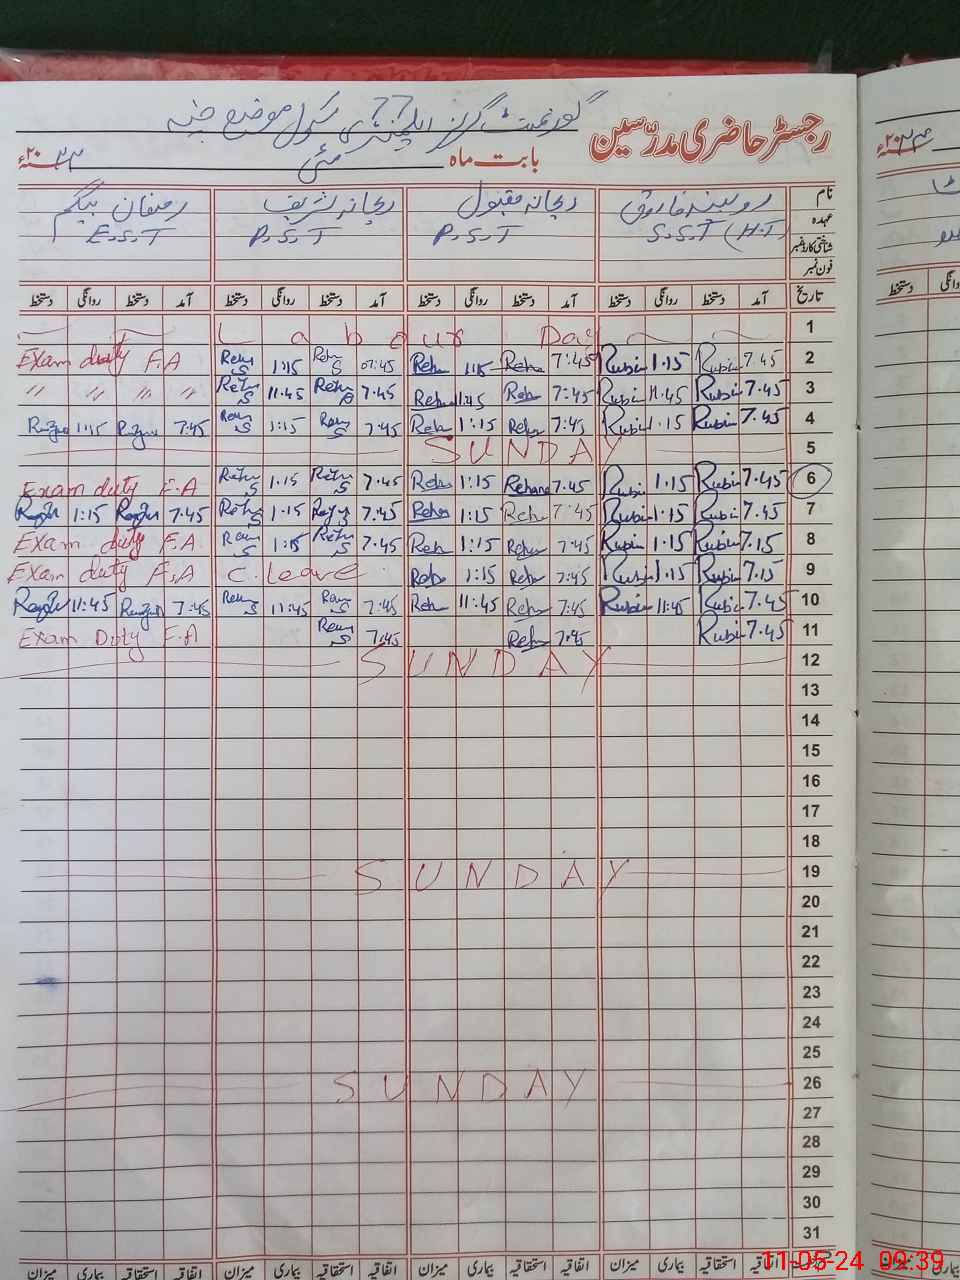 گورنمنٹ گرلز ایلیمنٹری سکول موضع
رجسٹر حاضری مدرّسین
بابت ماہ مئی ۲۰۲۴ء
نام روبینہ فاروق ریحانہ مقبول ریحانہ شریف رمضان بیگم
عہدہ S.S.T (H.T) P.S.T P.S.T E.S.T
شناختی کارڈ نمبر
فون نمبر
تاریخ آمد دستخط روانگی دستخط آمد دستخط روانگی دستخط آمد دستخط روانگی دستخط آمد دستخط روانگی دستخط
Labour Day 1
Exam duty F.A 1:15 07:45 1:15 7:45 Rubin 1.15 Rubin 7.45 2
" " " " 11.45 7.45 11:45 Reh 7:45 Rubin 11.45 Rubin 7.45 3
1:15 7:45 1:15 7.45 Reh 1:15 Reh 7:45 Rubin 1.15 Rubin 7.45 4
SUNDAY 5
Exam duty F.A 1.15 7.45 Reh 1:15 Rehana 7.45 Rubin 1.15 Rubin 7.45 6
1:15 7:45 1.15 7.45 Reh 1:15 Reh 7:45 Rubin 1.15 Rubin 7.45 7
Exam duty F.A 1:15 7.45 Reh 1:15 Reh 7:45 Rubin 1.15 Rubin 7.15 8
Exam duty F.A C.Leave Reh 1:15 Reh 7:45 Rubin 1.15 Rubin 7.15 9
11:45 7:45 11:45 7:45 Reh 11:45 Reh 7:45 Rubin 11:45 Rubin 7.45 10
Exam Duty F.A 7:45 Reh 7:45 Rubin 7.45 11
SUNDAY 12
13
14
15
16
17
18
SUNDAY 19
20
21
22
23
24
25
SUNDAY 26
27
28
29
30
31
اتفاقیہ استحقاقیہ بیماری میزان اتفاقیہ استحقاقیہ بیماری میزان اتفاقیہ استحقاقیہ بیماری میزان اتفاقیہ استحقاقیہ بیماری میزان
11-05-24 09:39